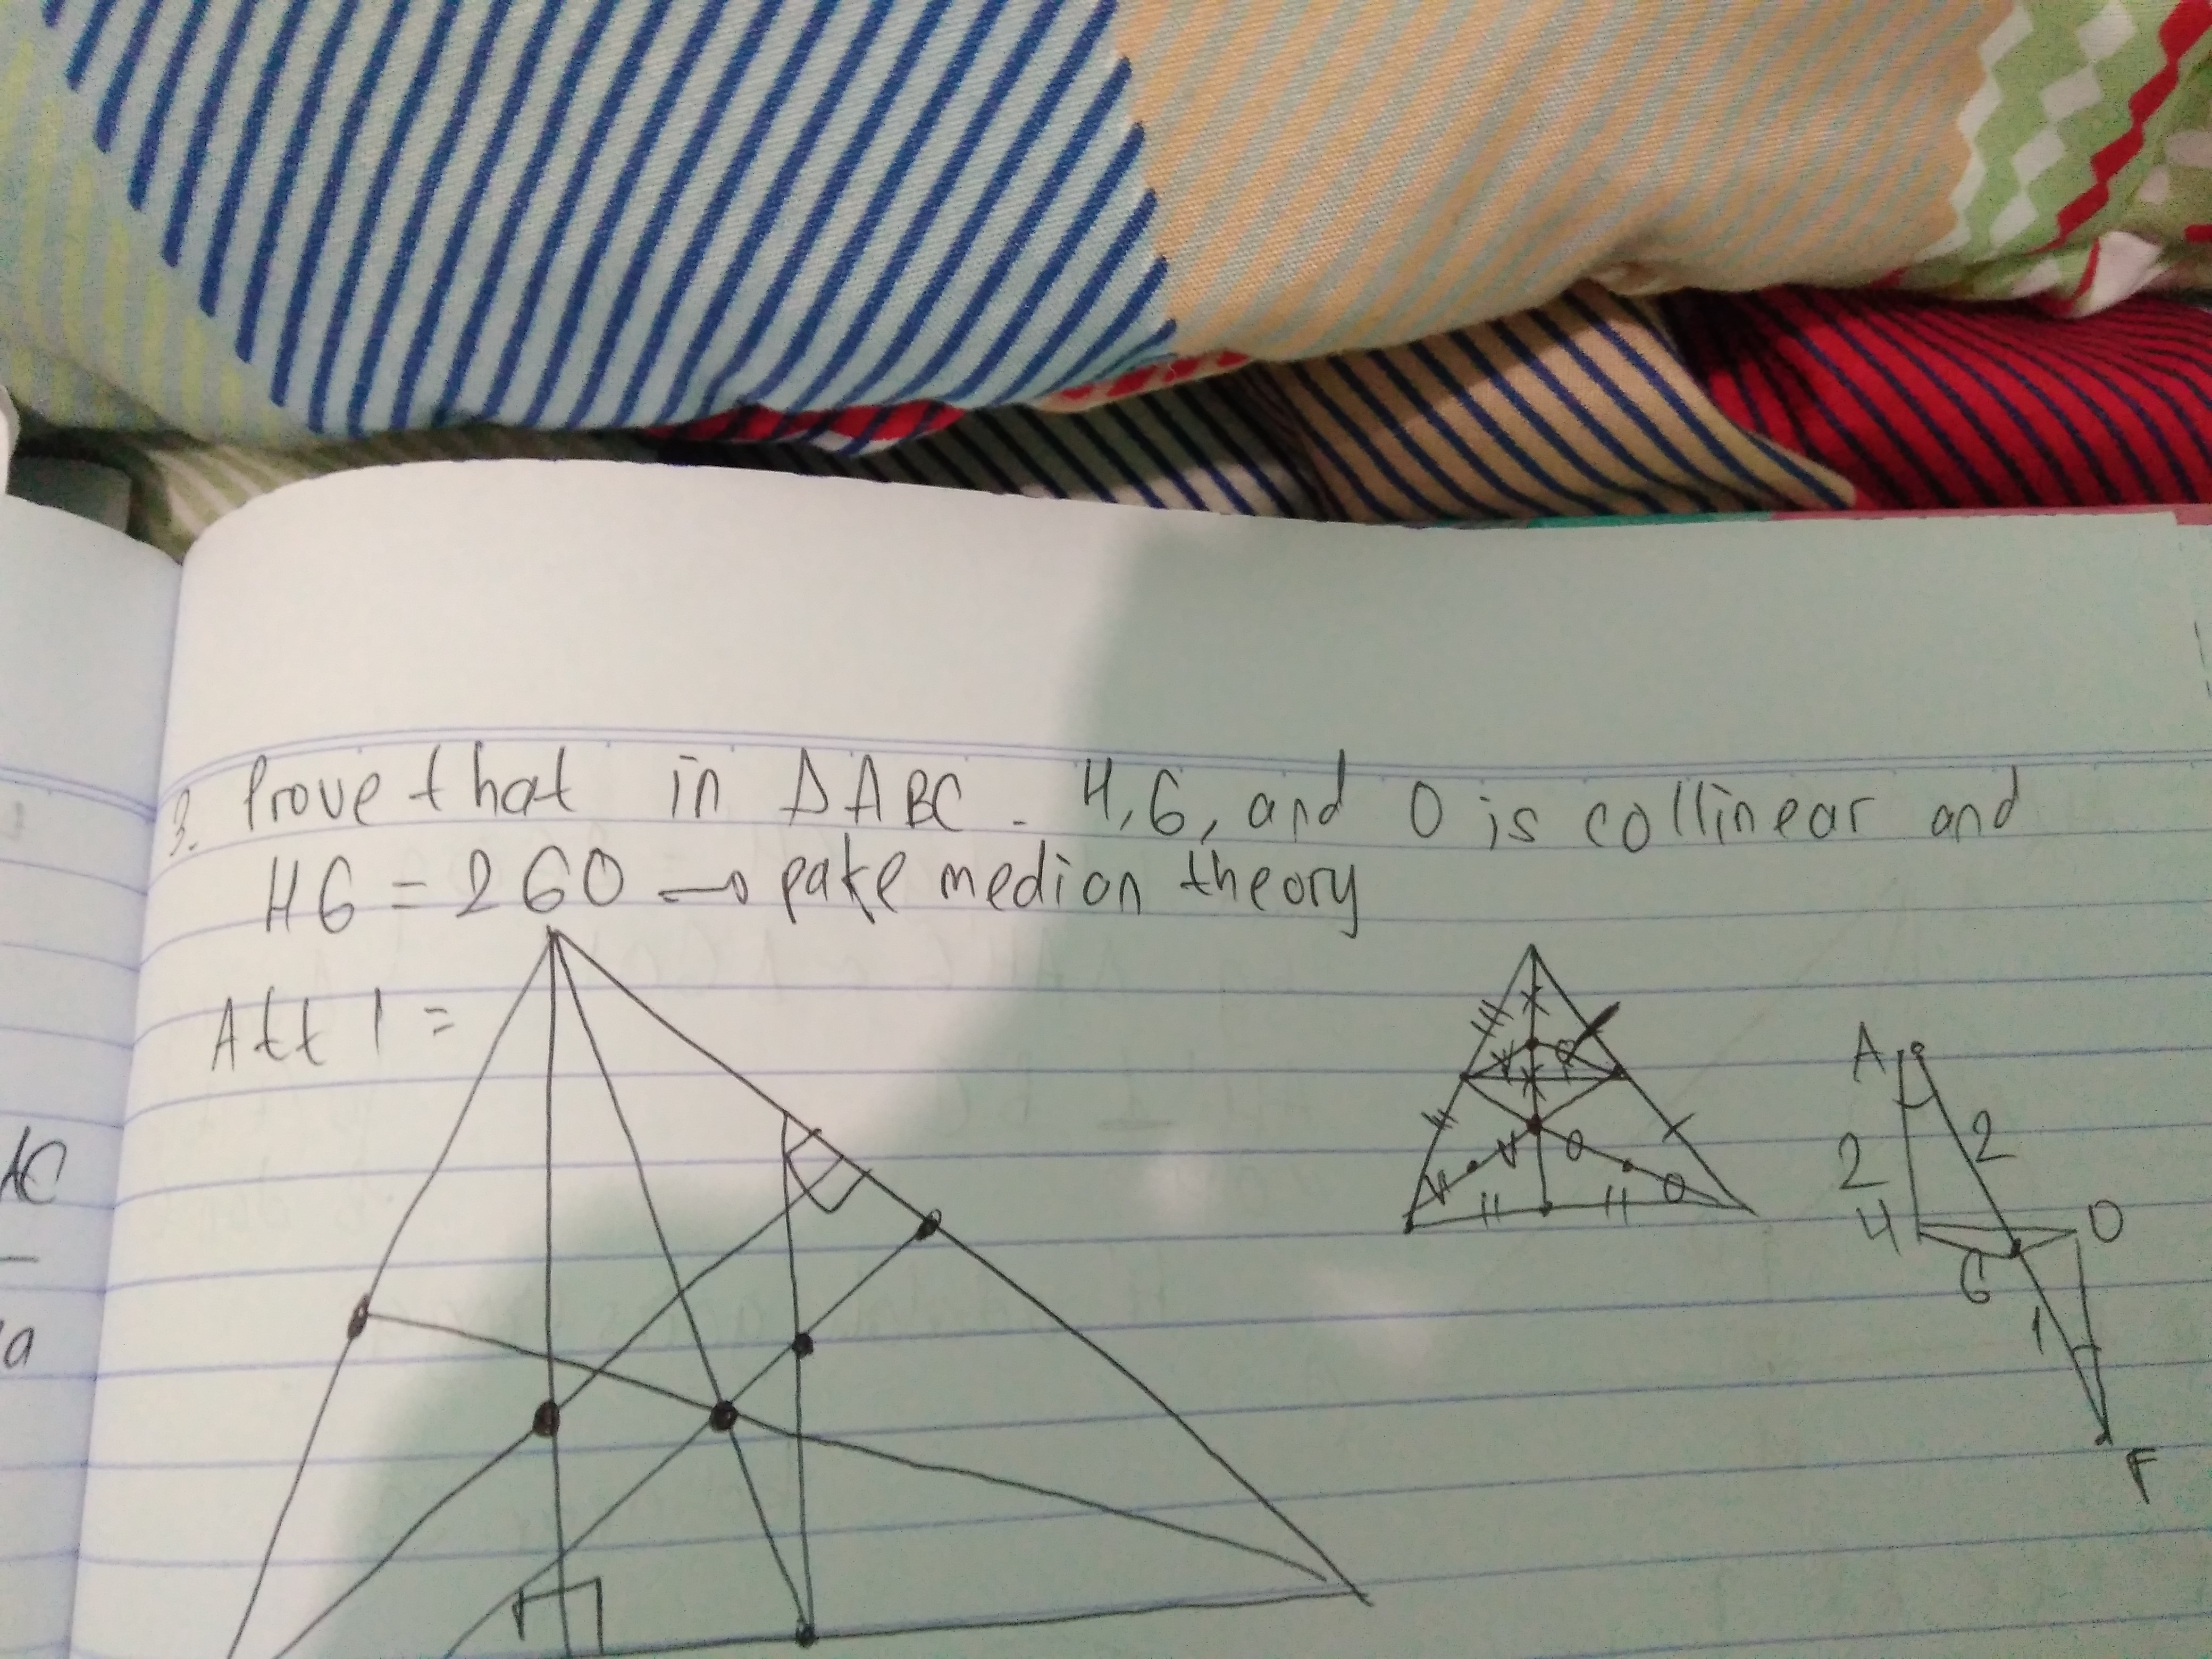 3. Prove that in ΔABC. H, G, and O is collinear and
HG = 2GO → pake median theory
Att 1 =
A
2
2
H
O
G
1
F
AC
a